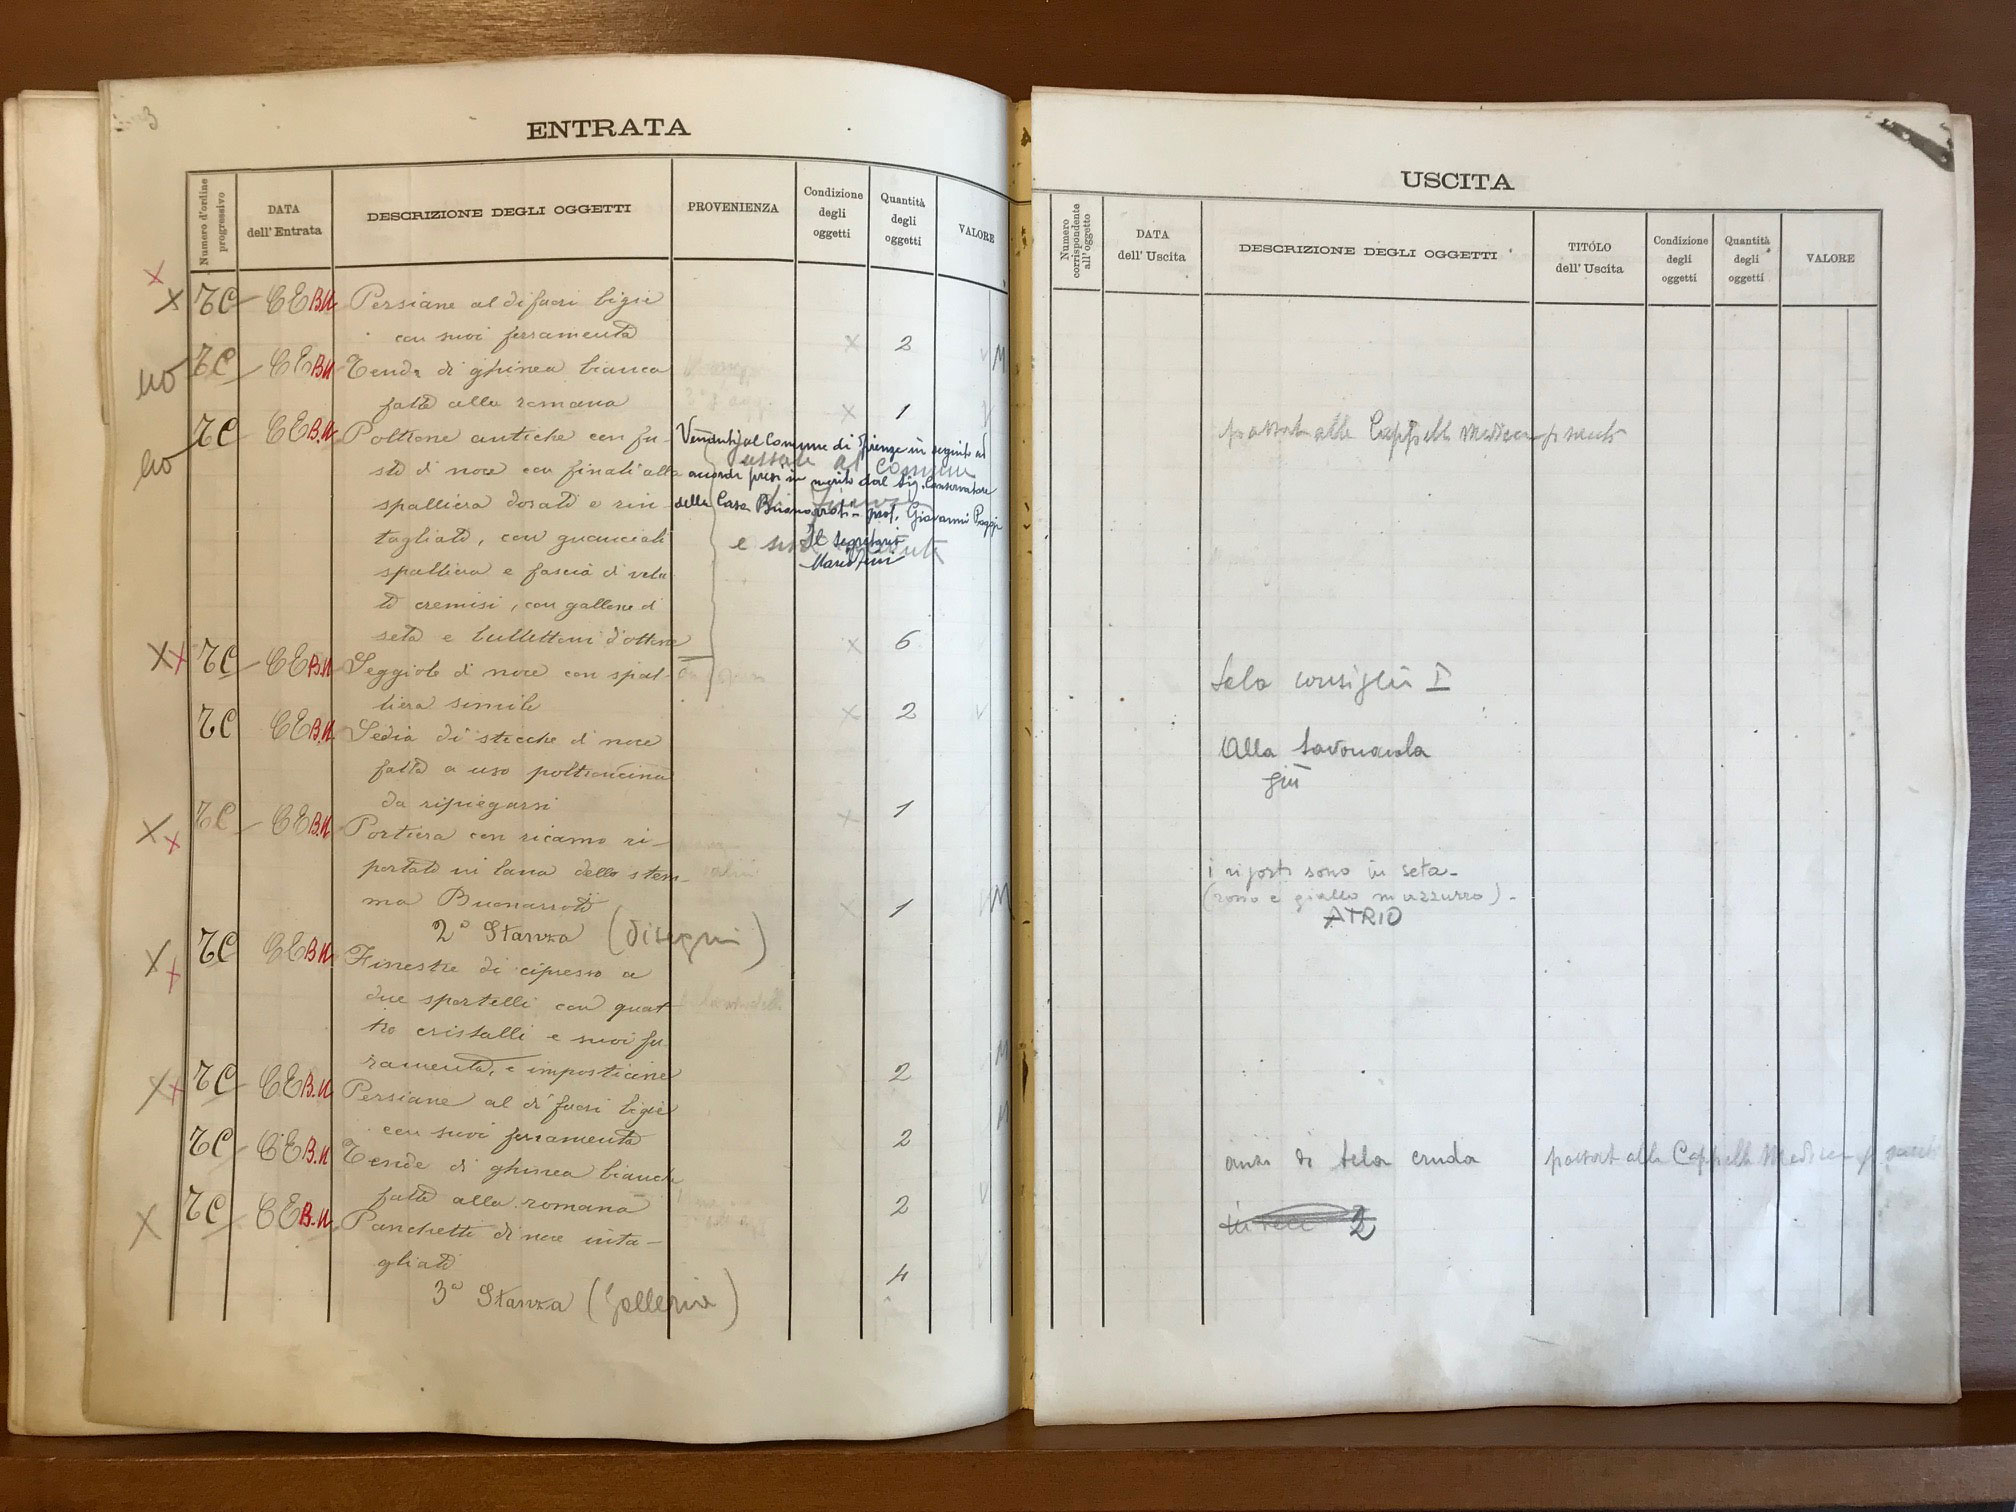 3
ENTRATA
Numero d'ordine progressivo
DATA dell'Entrata
DESCRIZIONE DEGLI OGGETTI
PROVENIENZA
Condizione degli oggetti
Quantità degli oggetti
VALORE
TC CE B.U. Persiane al di fuori bigie
con suoi ferramenta 2 M
no TC CE B.U. Tenda di ghinea bianca
fatta alla romana 1
no TC CE B.U. Poltrone antiche con fu-
sto di noce con finali alla
spalliera dorati e rin-
tagliati, con guanciali
spalliera e fascia di vellu
to cremisi, con gallone di
seta e bullettoni d'ottone 6
Venduti al Comune di Firenze in seguito ad
accordi presi in merito dal Sig. Conservatore
della Casa Buonarroti - prof. Giovanni Poggi
Il Segretario
al Comune
Firenze
TC CE B.U. Seggiole di noce con spal-
liera simile 2
TC CE B.U. Sedia di stecche di noce
fatta a uso poltroncina
da ripiegarsi 1
TC CE B.U. Portiera con ricamo ri-
portato in lana dello stem-
ma Buonarroti 1 M
2ª Stanza (disegni)
TC CE B.U. Finestre di cipresso a
due sportelli con quat
tro cristalli e suoi fer
ramenta, e imposticine 2 M
TC CE B.U. Persiane al di fuori bigie
con suoi ferramenta 2 M
TC CE B.U. Tende di ghinea bianche
fatte alla romana 2
TC CE B.U. Panchetti di noce inta-
gliati 4
3ª Stanza (Galleria)
USCITA
Numero corrispondente all'oggetto
DATA dell'Uscita
DESCRIZIONE DEGLI OGGETTI
TITOLO dell'Uscita
Condizione degli oggetti
Quantità degli oggetti
VALORE
alle Cappelle Medicee
Sala consiglii I
Alla Savonarola
giù
i riporti sono in seta-
(rosso e giallo in azzurro)-
ATRIO
anzi di tela cruda
alle Cappelle Medicee
invece 2